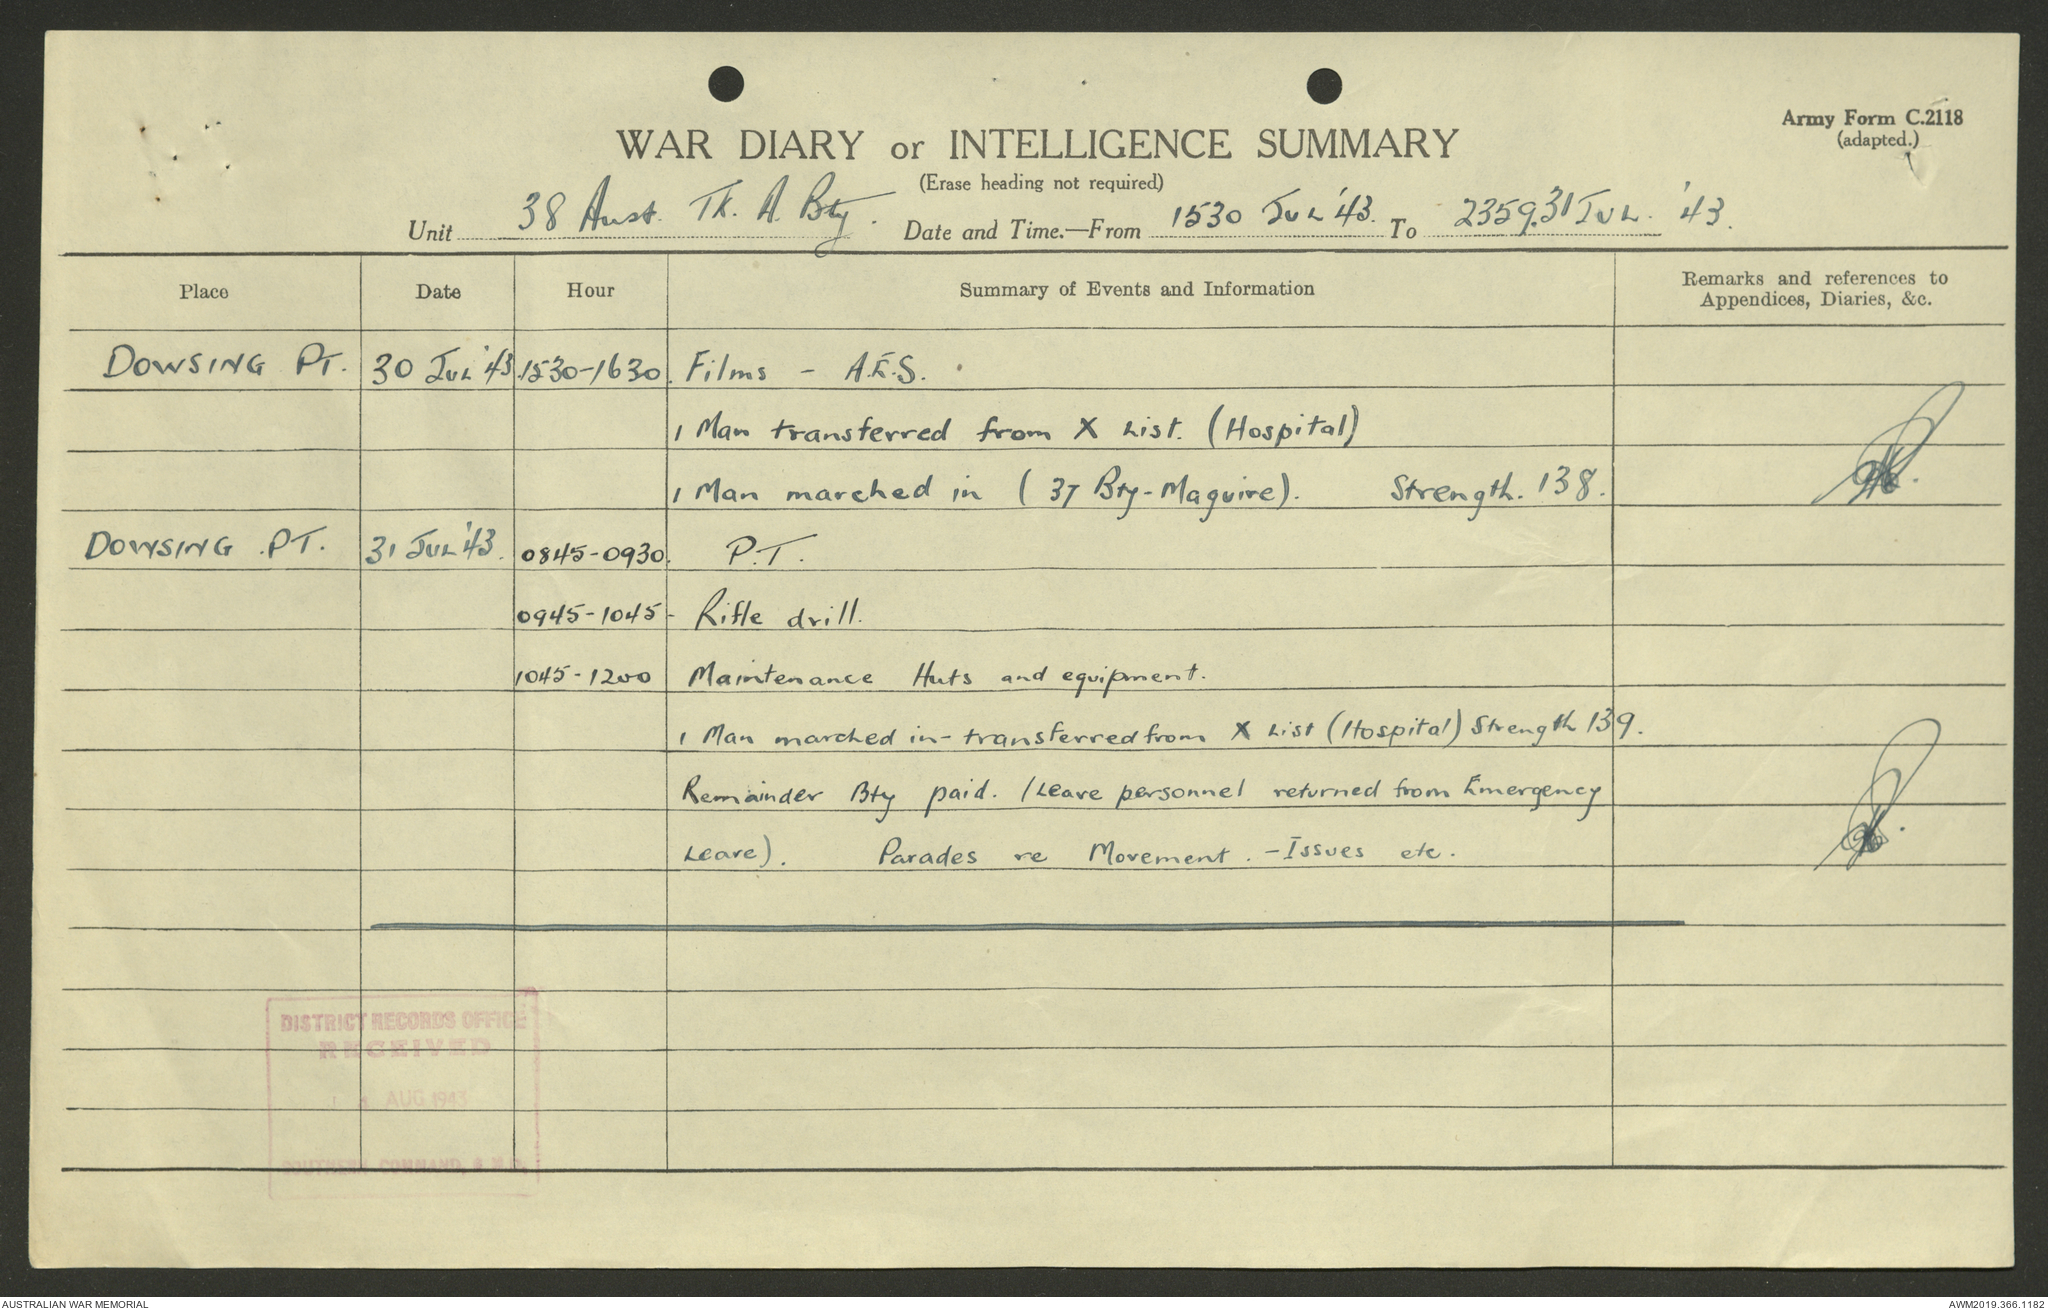 Army Form C.2118
(adapted.)
WAR DIARY or INTELLIGENCE SUMMARY
(Erase heading not required)
Unit 38 Aust. Tk. A. Bty. Date and Time.—From 1530 JUL '43. To 2359.31 JUL. '43.
Place Date Hour Summary of Events and Information Remarks and references to
Appendices, Diaries, &c.
DOWSING PT. 30 JUL '43 1530-1630. Films - A.E.S.
1 Man transferred from X List. (Hospital)
1 Man marched in (37 Bty-Maguire). Strength. 138.
DOWSING .PT. 31 JUL '43. 0845-0930. P.T.
0945-1045- Rifle drill.
1045-1200 Maintenance Huts and equipment.
1 Man marched in-transferred from X List (Hospital) Strength 139.
Remainder Bty paid. (Leave personnel returned from Emergency
Leave). Parades re Movement. -Issues etc.
DISTRICT RECORDS OFFICE
RECEIVED
AUG 1943
SOUTHERN COMMAND,
AUSTRALIAN WAR MEMORIAL AWM2019.366.1182